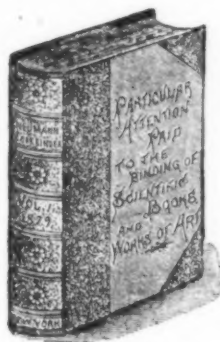 VOL. I.
1879.
NEW YORK
PARTICULAR
ATTENTION
PAID
TO THE
BINDING OF
SCIENTIFIC
BOOKS
AND
WORKS OF ART